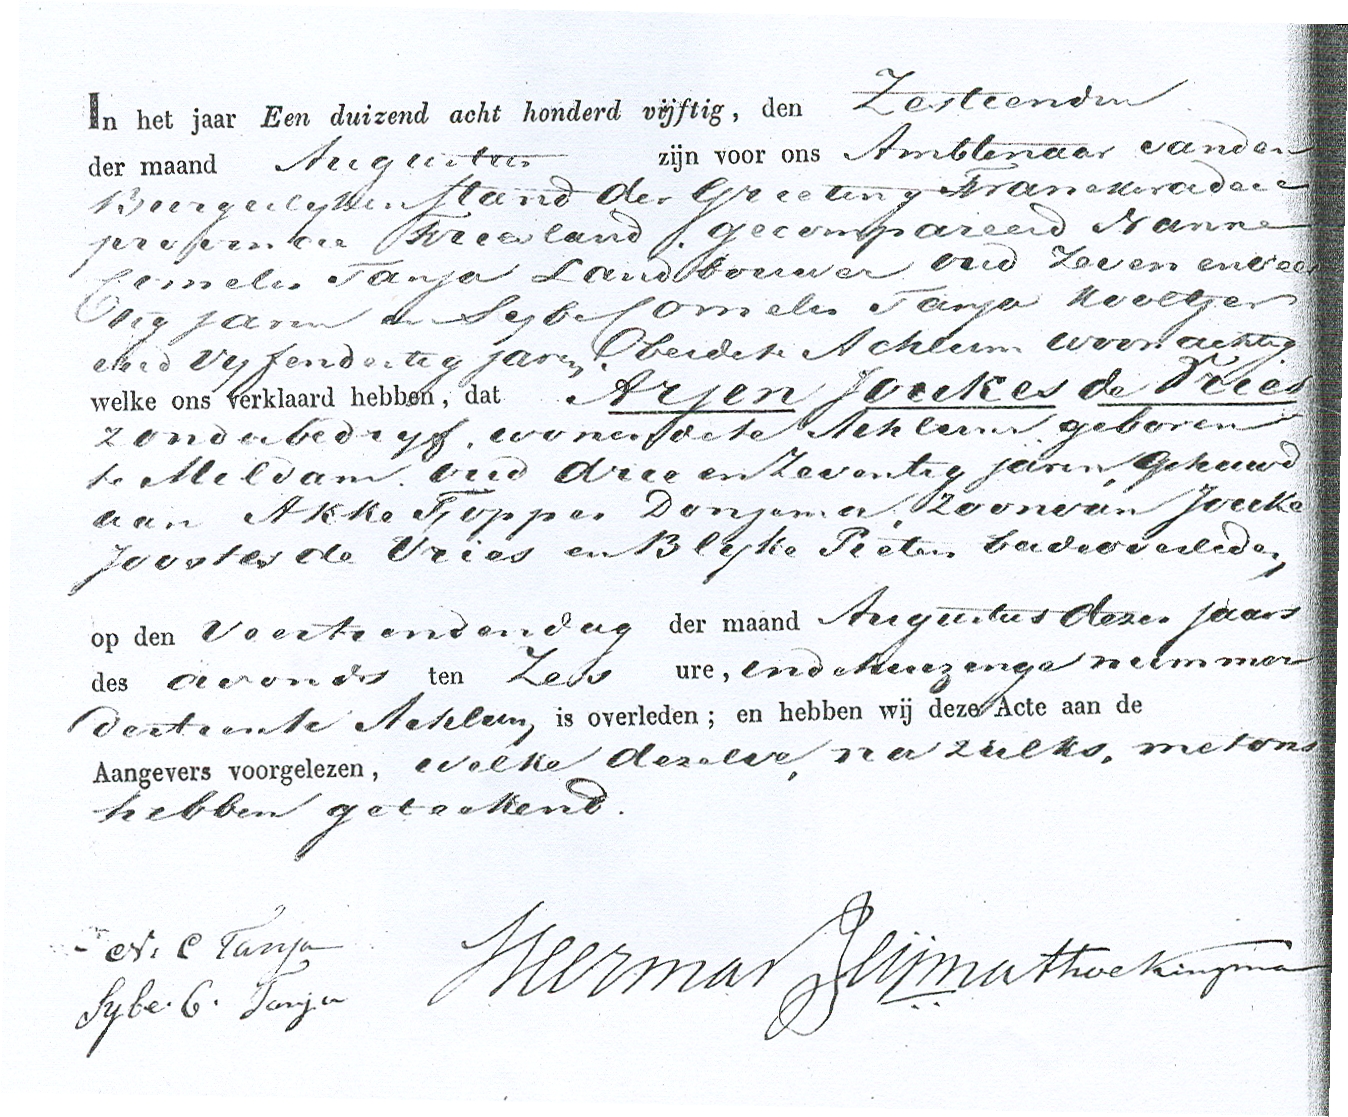 In het jaar Een duizend acht honderd vijftig, den Zestienden
der maand Augustus zijn voor ons Ambtenaar vanden
Burgerlyken Stand der Grieteny Franekeradeel
provincie Friesland, gecompareerd Nanne
Cornelis Tanja Landbouwer oud Zeven en veer
tig jaren en Sybe Cornelis Tanja Kooltjer
oud Vyf en dertig jaren, beide te Achlum woonachtig
welke ons verklaard hebben, dat Arjen Joukes de Vries
zonder bedryf, wonende te Achlum geboren
te Mildam, oud drie en Zeventig jaren, gehuwd
aan Akke Fopper Donjema, Zoon van Jouke
Joostes de Vries en Blyke Pieters beide overleden,
op den Veertiende dag der maand Augustus dezes jaars
des avonds ten Zes ure, in de huizinge nummer
dertien te Achlum, is overleden; en hebben wij deze Acte aan de
Aangevers voorgelezen, welke dezelve, na zulks, met ons
hebben geteekend.
N. C Tanja
Sybe. C. Tanja